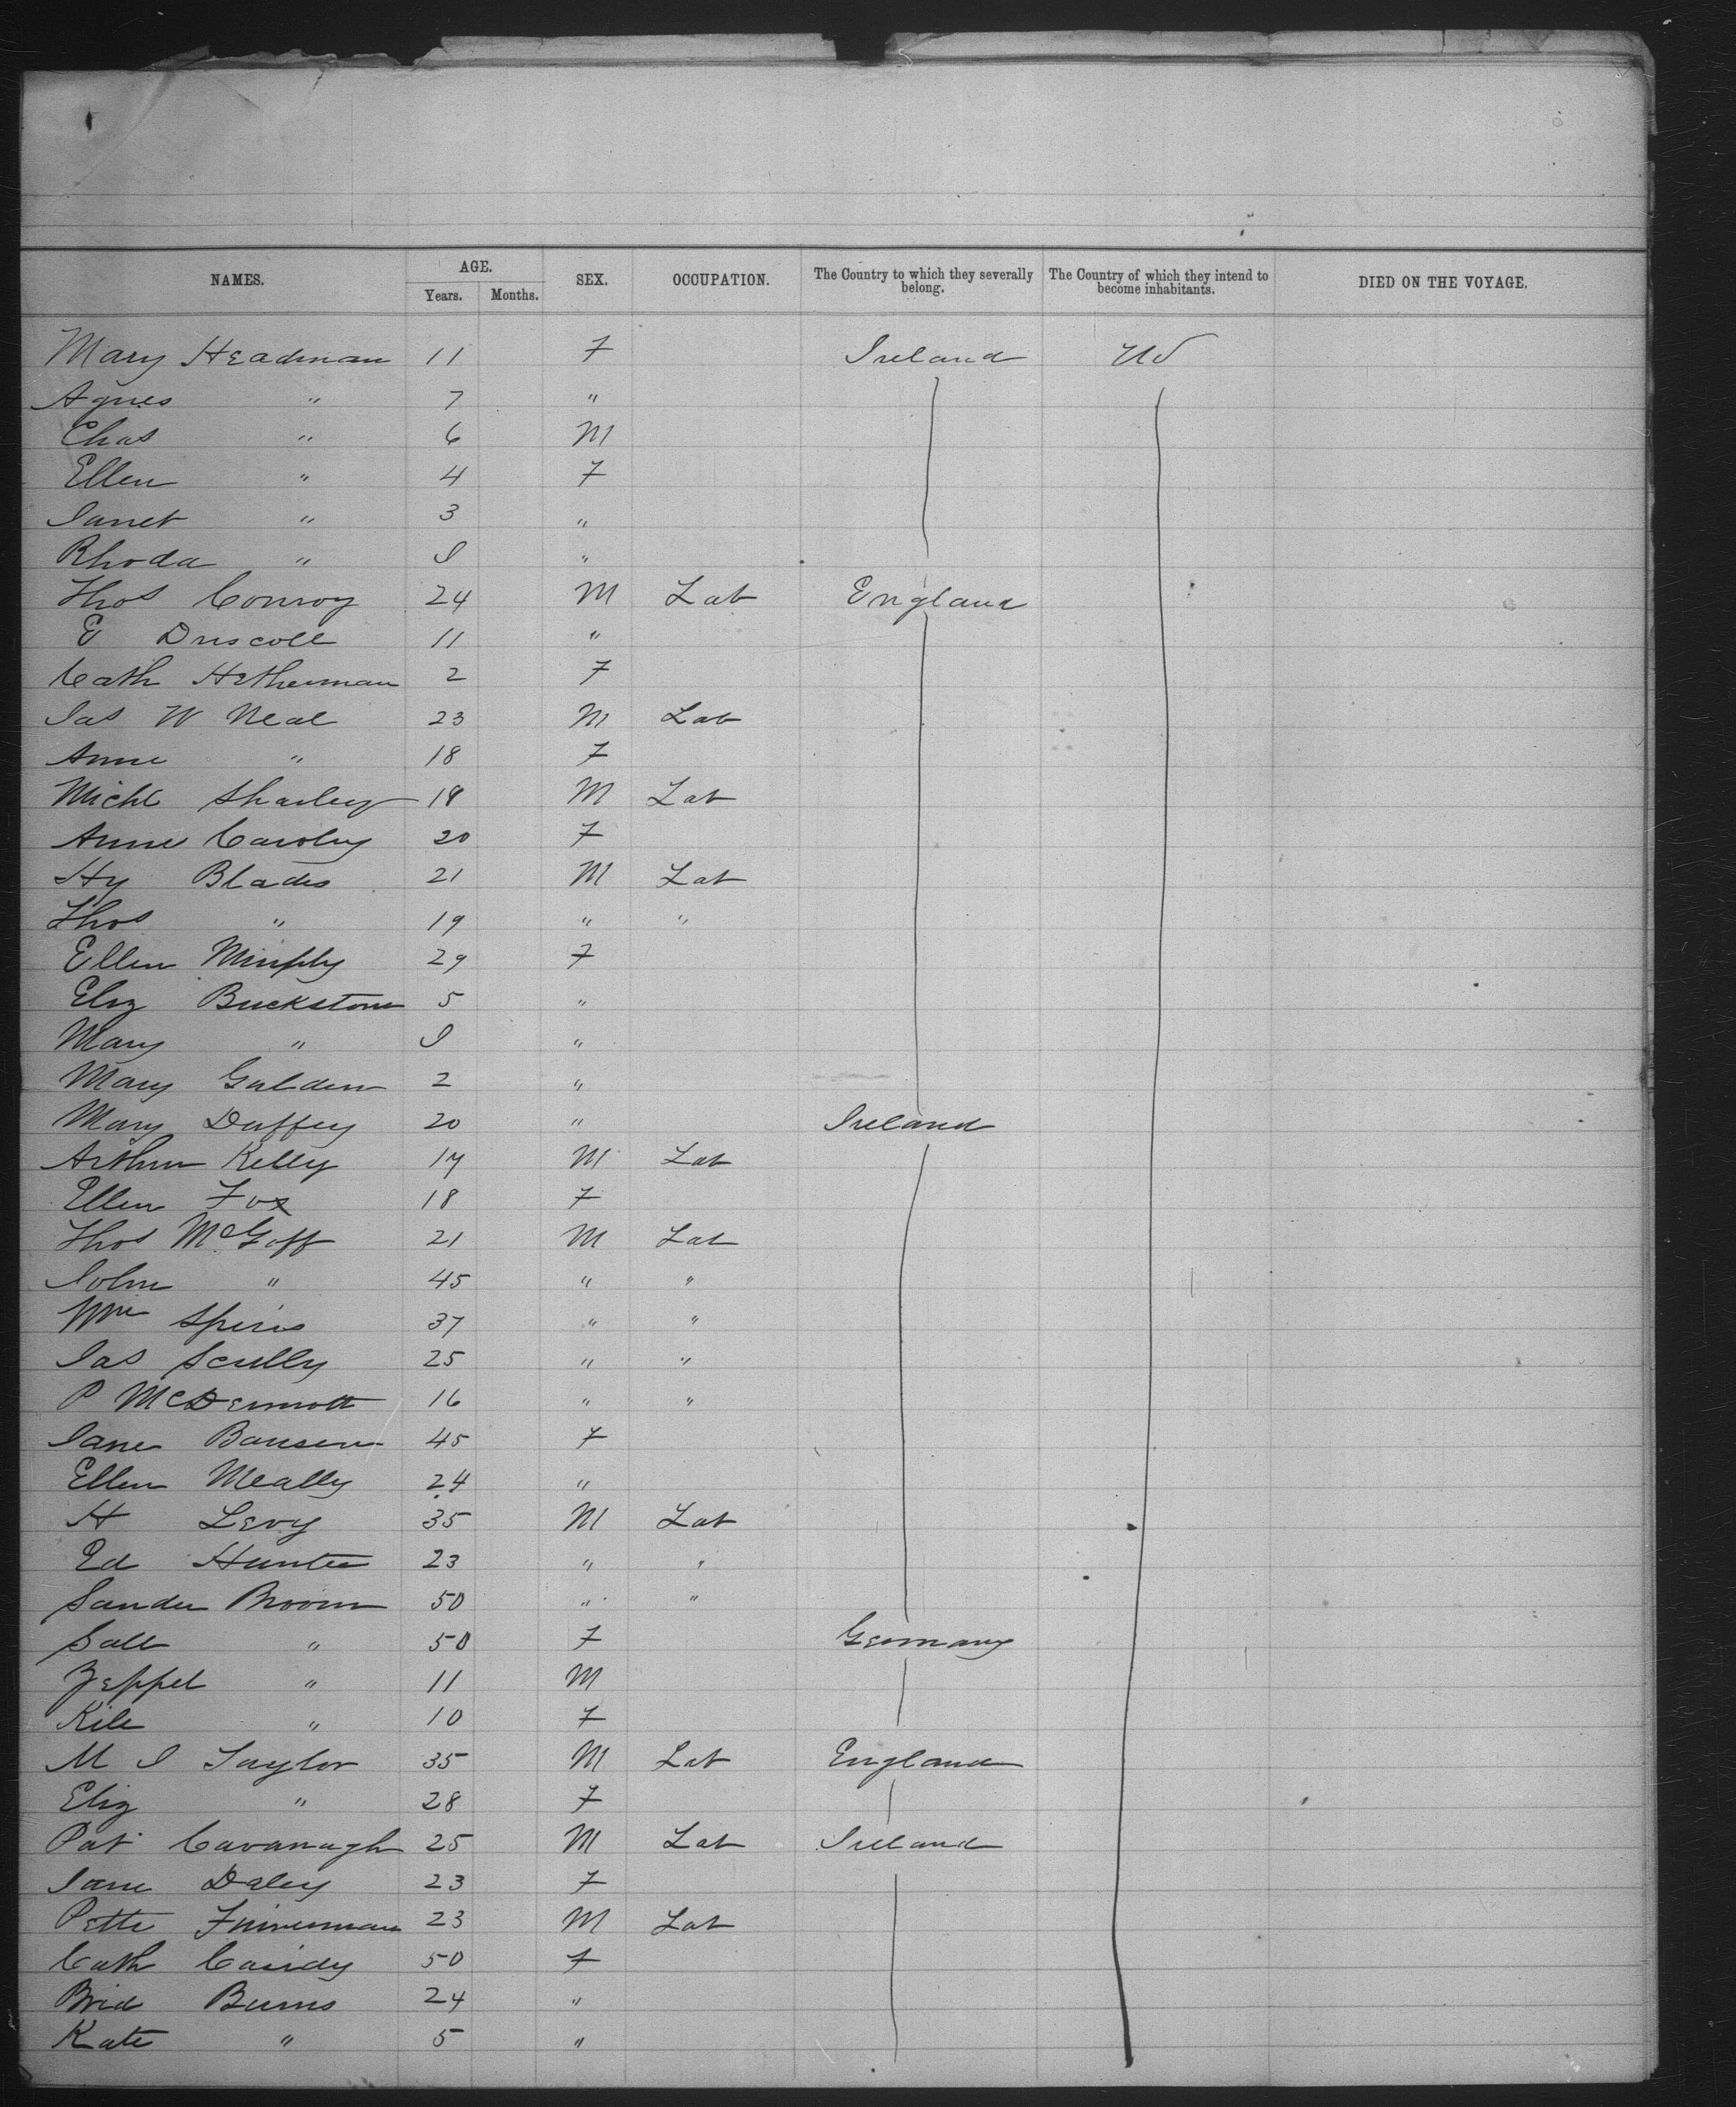 NAMES. AGE. SEX. OCCUPATION. The Country to which they severally belong. The Country of which they intend to become inhabitants. DIED ON THE VOYAGE.
Years. Months.
Mary Headman 11 F Ireland US
Agnes " 7 "
Chas " 6 M
Ellen " 4 F
Janet " 3 "
Rhoda " I "
Thos Conroy 24 M Lab England
E Driscoll 11 "
Cath Hetherman 2 F
Jas W Neal 23 M Lab
Anne " 18 F
Michl Sharley 18 M Lab
Anne Caroley 20 F
Hy Blades 21 M Lab
Thos " 19 " "
Ellen Murphy 29 F
Eliz Buckstone 5 "
Mary " I "
Mary Golden 2 "
Mary Duffey 20 " Ireland
Arthur Kelly 17 M Lab
Ellen Fox 18 F
Thos McGoff 21 M Lab
John " 45 " "
Wm Spiers 37 " "
Jas Scully 25 " "
P McDermott 16 " "
Jane 45 F
Ellen Meally 24 "
H Levy 35 M Lab
Ed Hunter 23 " "
Sander Broom 50 " "
Sall " 50 F Germany
Zeppel " 11 M
Kile " 10 F
M J Taylor 35 M Lab England
Eliz " 28 F
Pat Cavanagh 25 M Lab Ireland
Jane Daley 23 F
Peter 23 M Lab
Cath Casidy 50 F
Brid Burns 24 "
Kate " 5 "